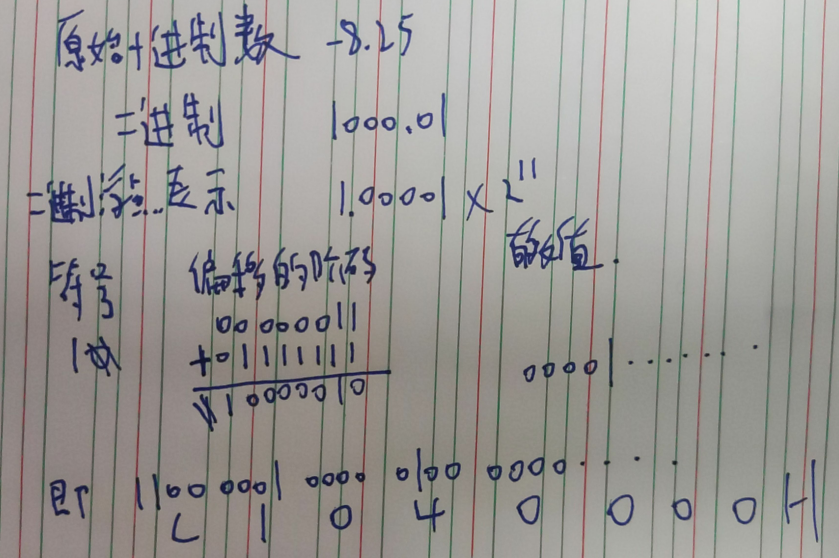 原始十进制数 -8.25
二进制 1000.01
二进制浮点表示 1.00001 × 2^11
符号 偏移的阶码 有效值.
00000011
1 +01111111 00001........
10000010
即 1100 0001 0000 0100 0000....
C 1 0 4 0 0 0 0 H